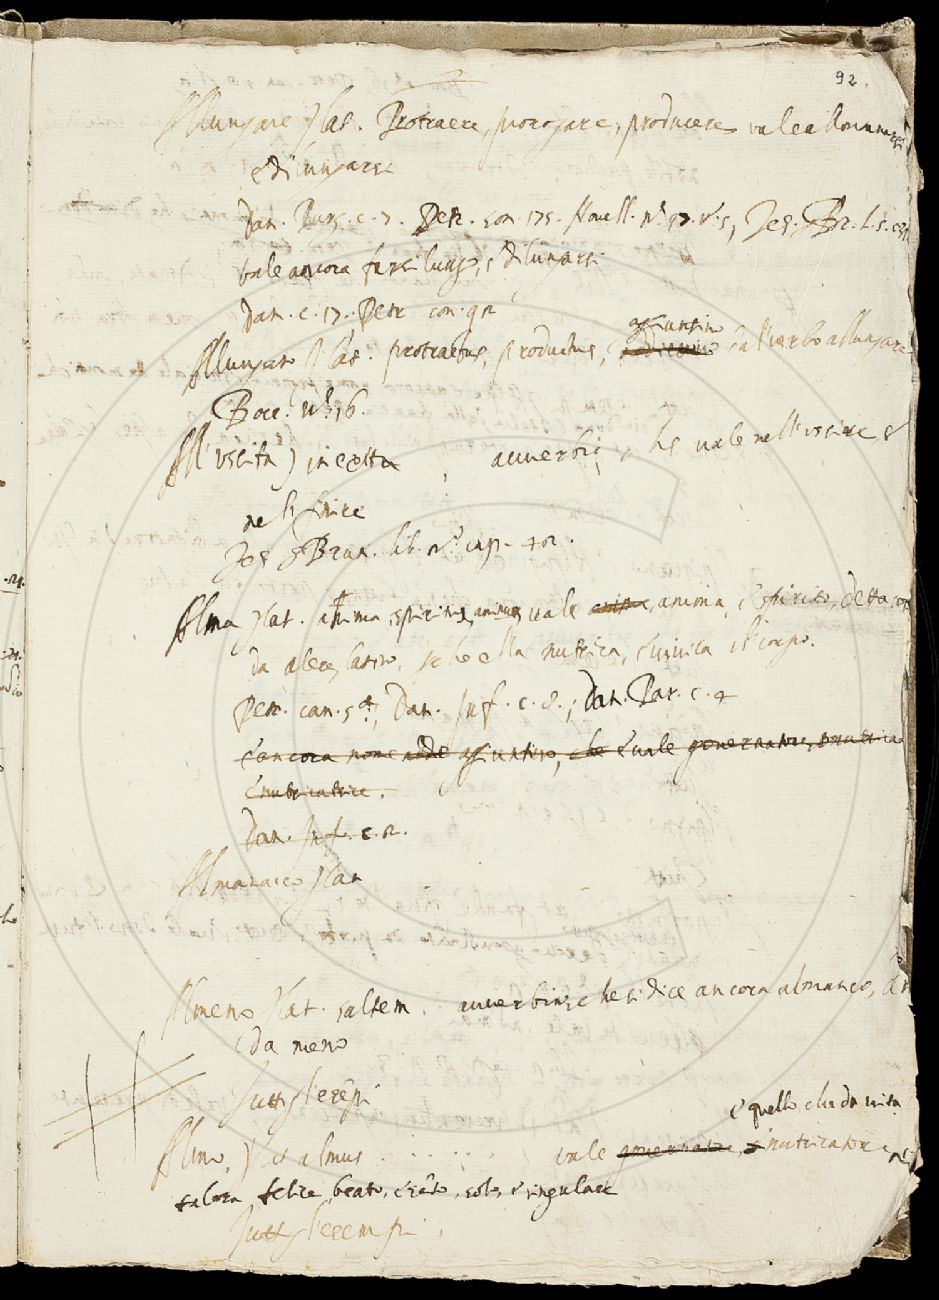 92
Allungare) lat. Protraere, prorogare, producere vale allontanarsi
e dilungarsi
Dan. Purg. c. 7. Petr. son. 175. Novell. nº 97. v. 5, Tes. Br. l. 5. c.
vale ancora farsi lungo, e dilungarsi
Dan. c. 17. Petr. con.
Allungato) lat. protractus, productus, è agiuntivo dal verbo allungare
Bocc. nº 76.
All'uscita) in exitu, auverbio, che vale nell'uscire e
nel finire
Tes. Brun. lib. nº cap. 42.
Alma) lat. anima, spiritus, animus, vale anima, e spirito, detta
da alere, latino, che ella nutrica, e vivica il corpo.
Petr. can. 5ª; Dan. Inf. c. 8.; Dan. Par. c. 4
è ancora nome agiuntivo, che vale governatore, nutrica
e nutricatrice.
Dan. Inf. c. 2.
Almanacco) lat
Almeno) lat. saltem. auverbio, che si dice ancora almanco,
da meno
Tutti gl'esempi
è quello, che da vita
Almo,) lat almus vale governatore, e nutricatore
talora felice, beato, solo, e singulare
Tutti gl'esempi